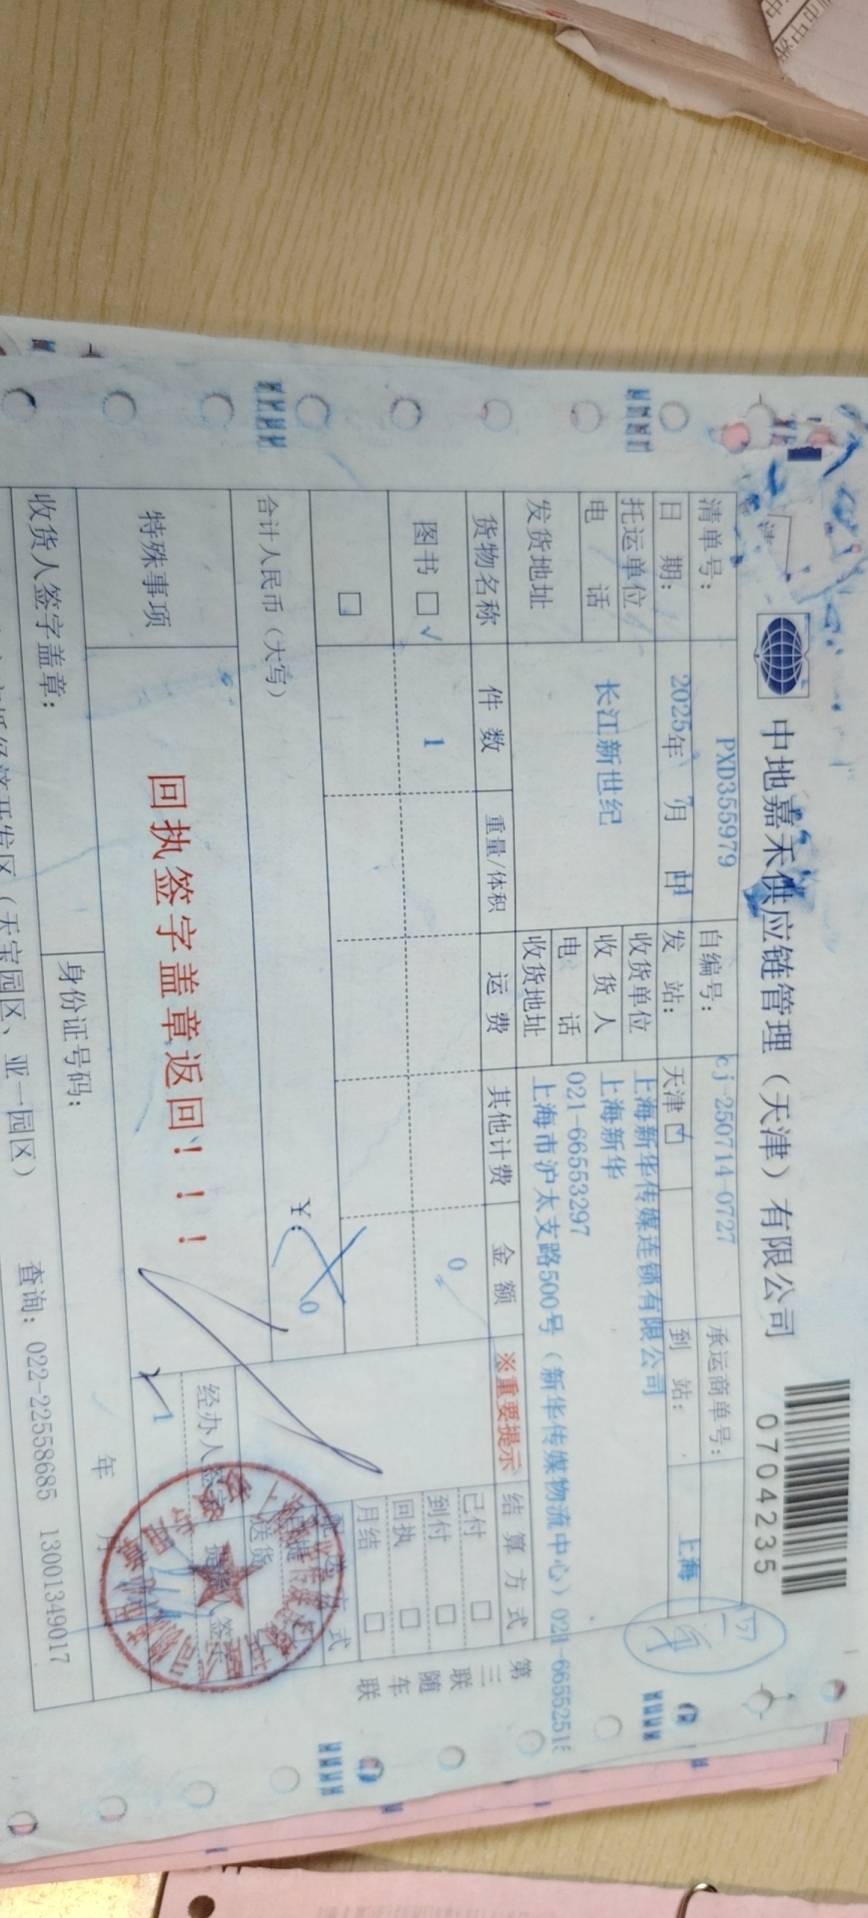 中地嘉禾供应链管理（天津）有限公司
0704235
清单号： PXD355979 自编号： cj-250714-0727 承运商单号：
日 期： 2025年 7月 发 站： 天津 到 站： 上海
托运单位 长江新世纪 收货单位 上海新华传媒连锁有限公司
收 货 人 上海新华
电 话 电 话 021-66553297
发货地址 收货地址 上海市沪太支路500号（新华传媒物流中心）021-6655251
货物名称 件 数 重量/体积 运 费 其他计费 金 额 ※重要提示 结 算 方 式
图书 □ √ 1 0
已付 □
到付 □
回执 □
月结 □
□
合计人民币（大写） ¥： 0
送货
特殊事项 回执签字盖章返回！！！
经办人签字
1
收货人签字盖章： 身份证号码： 年 月
经济开发区（天宝园区、亚一园区） 查询：022-22558685 13001349017
第三联 随车联